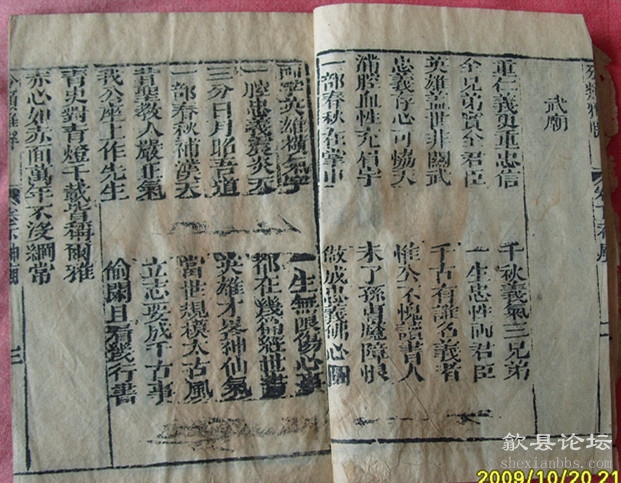 武廟
重仁義更重忠信
全兄弟實全君臣
英雄蓋世非關武
忠義存心可協天
滿腔血性充宙宇
一部春秋在掌中
千秋義氣三兄弟
一生忠性兩君臣
千古有誰名義者
惟公不愧讀書人
未了孫曹魔障恨
做成忠義佛心圖
英雄橫氣
一腔忠義襄炎天
三分日月昭吾道
一部春秋補漢天
昔聖教人嚴正氣
我公座上作先生
一生無限傷心事
都在幾篇經世書
英雄才略神仙氣
當世規模太古風
立志要成千古事
偷閑且看幾行書
青史對青燈千載皆稱爾雅
赤心如赤面萬年不沒綱常
三
歙县论坛
shexianbbs.com
2009/10/20 21